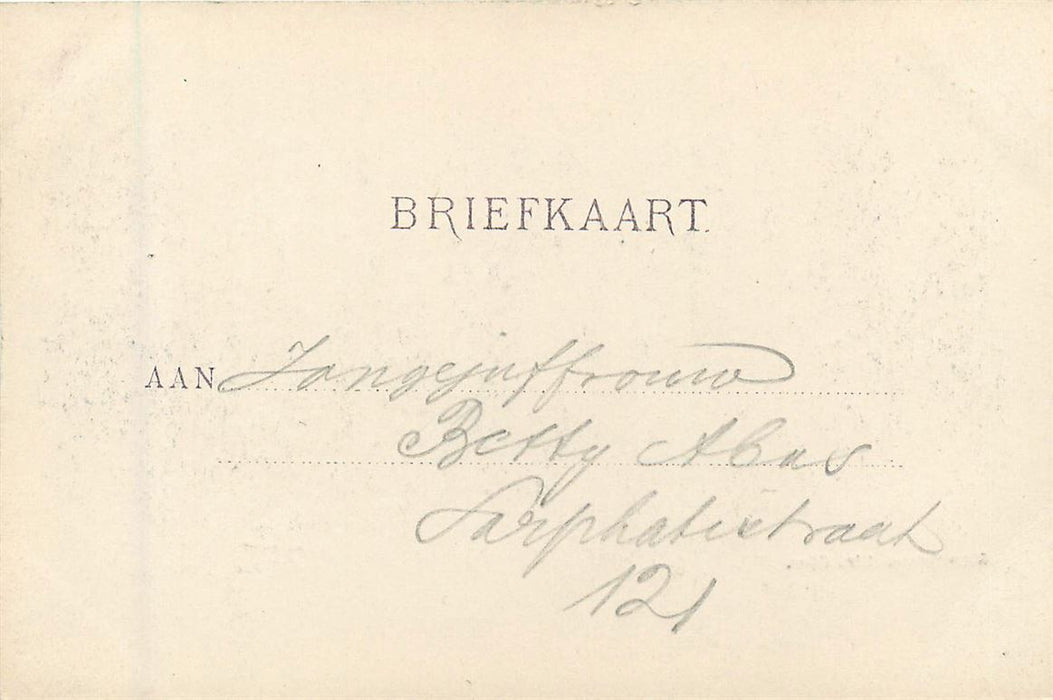 BRIEFKAART.
AAN Jongejuffrouw
Betty Abas
Sarphatistraat
121